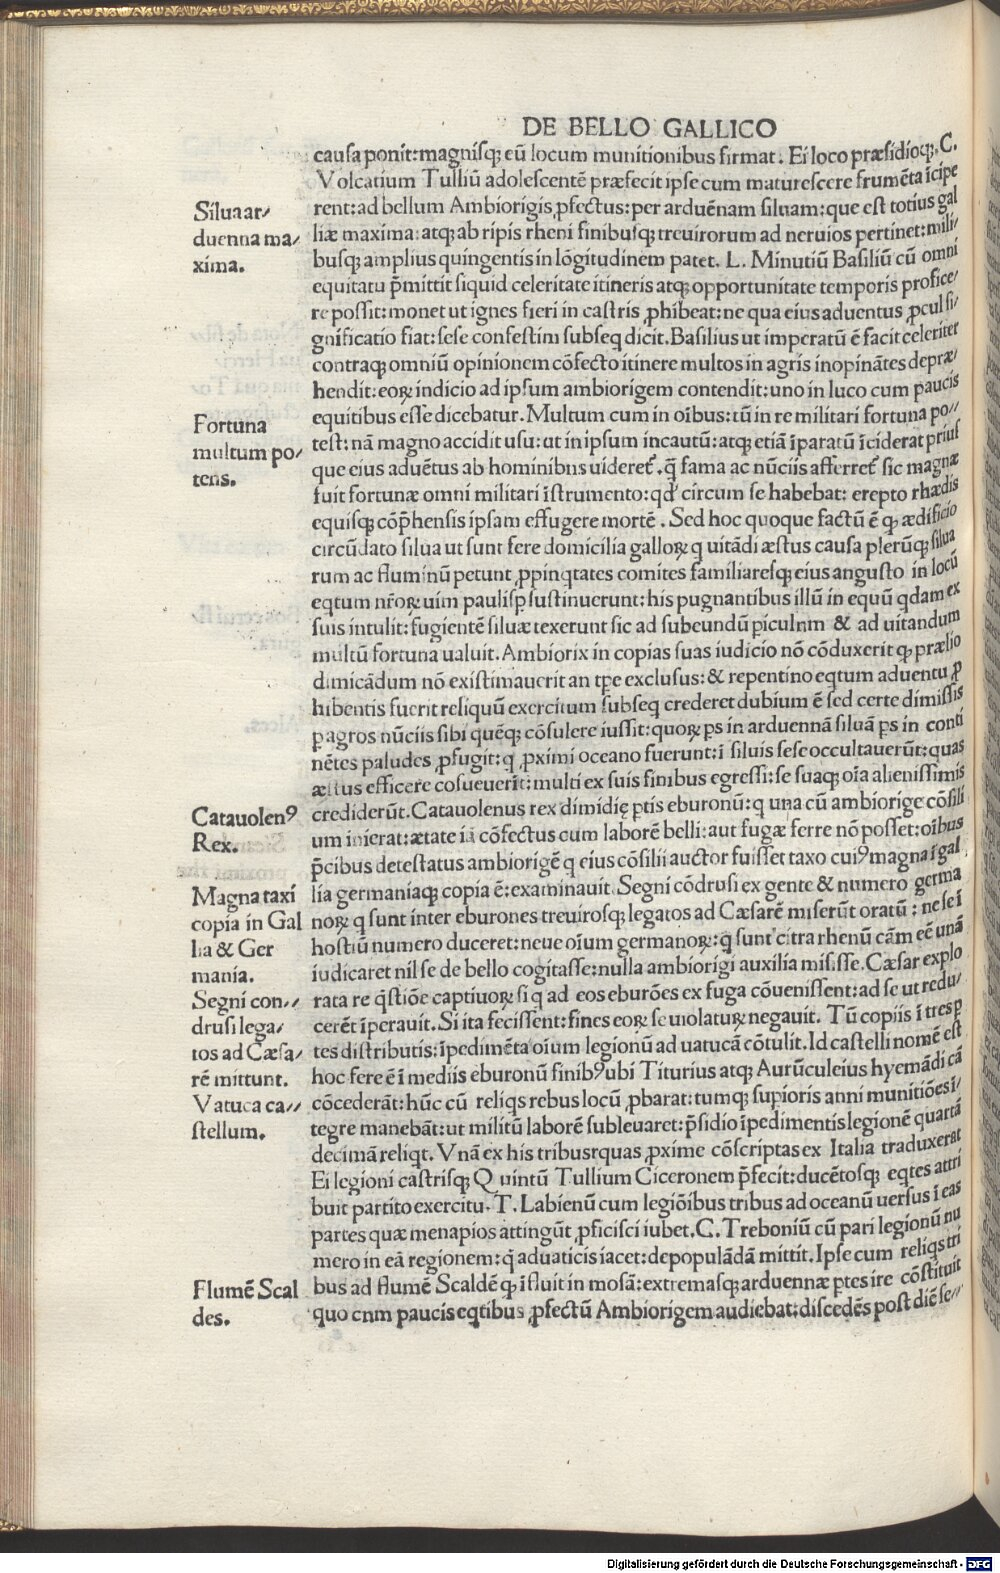 DE BELLO GALLICO
causa ponit:magnisq; eū locum munitionibus firmat. Ei loco præsidioq;. C.
Volcatium Tulliū adolescentē præfecit ipse cum maturescere frumēta īcipe
rent:ad bellum Ambiorigis ꝓfectus:per arduēnam siluam:que est totius gal
liæ maxima:atq; ab ripis rheni finibusq; treuirorum ad neruios pertinet:mili/
busq; amplius quingentis in lōgitudinem patet. L. Minutiū Basiliū cū omni
equitatu p̄mittit siquid celeritate itineris atq; opportunitate temporis profice/
re possit:monet ut ignes fieri in castris ꝓhibeat:ne qua eius aduentus ꝓcul si/
gnificatio fiat:sese confestim subseq dicit. Basilius ut imperatū ē facit celeriter
contraq; omniū opinionem cōfecto itinere multos in agris inopinātes depræ/
hendit:eoꝝ indicio ad ipsum ambiorigem contendit:uno in luco cum paucis
equitibus esse dicebatur. Multum cum in oībus:tū in re militari fortuna po//
test:nā magno accidit usu:ut in ipsum incautū:atq; etiā īparatū īciderat prius
que eius aduētus ab hominibns uideret̄. q̄ fama ac nūciis afferret̄ sic magnæ
fuit fortunæ omni militari īstrumento:qd' circum se habebat: erepto rhædis
equisq; cōp̄hensis ipsam effugere mortē. Sed hoc quoque factū ē ꝙ ædificio
circūdato silua ut sunt fere domicilia galloꝝ q uitādi æstus causa plerūq; silua
rum ac fluminū petunt ꝓpinqtates comites familiaresq; eius angusto in locū
eqtum nr̄oꝝ uim paulisꝑ sustinuerunt:his pugnantibus illū in equū qdam ex
suis intulit:fugientē siluæ texerunt sic ad subeundū ꝑiculnm & ad uitandum
multū fortuna ualuit. Ambiorix in copias suas iudicio nō cōduxerit ꝙ prælio
dimicādum nō existimauerit an tp̄e exclusus:& repentino eqtum aduentu ꝓ
hibentis fuerit reliquū exercitum subseq crederet dubium ē sed certe dimissis
ꝑ agros nūciis sibi quēq; cōsulere iussit:quoꝝ ps in arduennā siluā ps in conti
nētes paludes ꝓfugit:q ꝓximi oceano fuerunt:ī siluis sese occultauerūt:quas
æstus efficere cōsueuerīt:multi ex suis finibus egressi:se suaq; oīa alienissimis
crediderūt. Catauolenus rex dimidię ꝑtis eburonū:q una cū ambiorige cōsili
um inierat:ætate iā cōfectus cum laborē belli:aut fugæ ferre nō posset:oībus
p̄cibus detestatus ambiorigē q eius cōsilii auctor fuisset taxo cuiꝰ magna ī gal
lia germaniaq; copia ē:examinauit. Segni cōdrusi ex gente & numero germa
noꝝ q sunt inter eburones treuirosq; legatos ad Cæsarē miserūt oratū: ne se ī
hostiū numero duceret:neue oīum germanoꝝ:q sunt citra rhenū cām eē unā
iudicaret nil se de bello cogitasse:nulla ambiorigi auxilia misisse. Cæsar explo
rata re q̄stiōe captiuoꝝ si q ad eos eburōes ex fuga cōuenissent:ad se ut redu/
cerēt īperauit. Si ita fecissent:fines eoꝝ se uiolaturꝝ negauit. Tū copiis ī tres ꝑ
tes distributis:īpedimēta oīum legionū ad uatucā cōtulit. Id castelli nomē est
hoc fere ē ī mediis eburonū finibꝰ ubi Titurius atq; Aurūculeius hyemādi cā
cōcederāt:hūc cū reliqs rebus locū ꝓbarat:tumq; suꝑioris anni munitiōes ī/
tegre manebāt:ut militū laborē subleuaret:p̄sidio īpedimentis legionē quartā
decimā reliqt. Vnā ex his tribusrquas ꝓxime cōscriptas ex Italia traduxerat
Ei legioni castrisq; Q. uintū Tullium Ciceronem p̄fecit:ducētosq; eqtes attri
buit partito exercitu. T. Labienū cum legiōibus tribus ad oceanū uersus ī eas
partes quæ menapios attingūt ꝓficisci iubet. C. Treboniū cū pari legionū nu
mero in eā regionem:q̄ aduaticis iacet:depopulādā mittit. Ipse cum reliqs tri
bus ad flumē Scaldē ꝙ īfluit in mosā:extremasq; arduennæ ꝑtes ire cōstituit
quo cnm paucis eqtibus ꝓfectū Ambiorigem audiebat:discedēs post diē se//
Silua ar/
duenna ma/
xima.
Fortuna
multum po/
tens.
Catauolenꝰ
Rex.
Magna taxi
copia in Gal
lia & Ger
mania.
Segni con//
drusi lega/
tos ad Cæsa/
rē mittunt.
Vatuca ca//
stellum.
Flumē Scal
des.
Digitalisierung gefördert durch die Deutsche Forschungsgemeinschaft - DFG